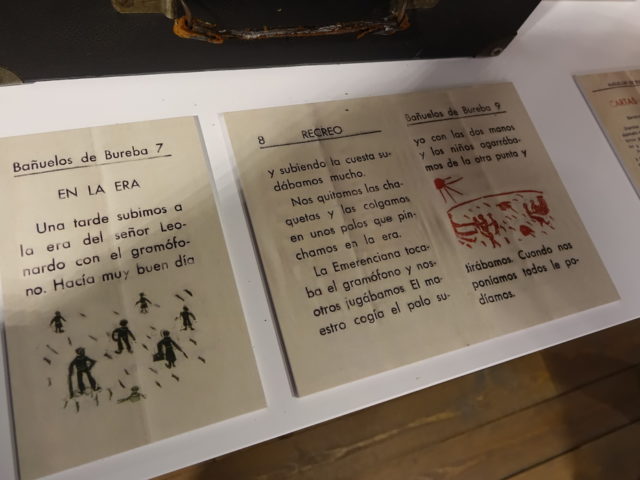 Bañuelos de Bureba 7
EN LA ERA
Una tarde subimos a
la era del señor Leo-
nardo con el gramófo-
no. Hacía muy buen día
8 RECREO
y subiendo la cuesta su-
dábamos mucho.
Nos quitamos las cha-
quetas y las colgamos
en unos palos que pin-
chamos en la era.
La Emerenciana toca-
ba el gramófono y nos-
otros jugábamos. El ma-
estro cogía el palo su-
Bañuelos de Bureba 9
yo con las dos manos
y los niños agarrába-
mos de la otra punta y
tirábamos. Cuando nos
poníamos todos le po-
díamos.
CARTAS